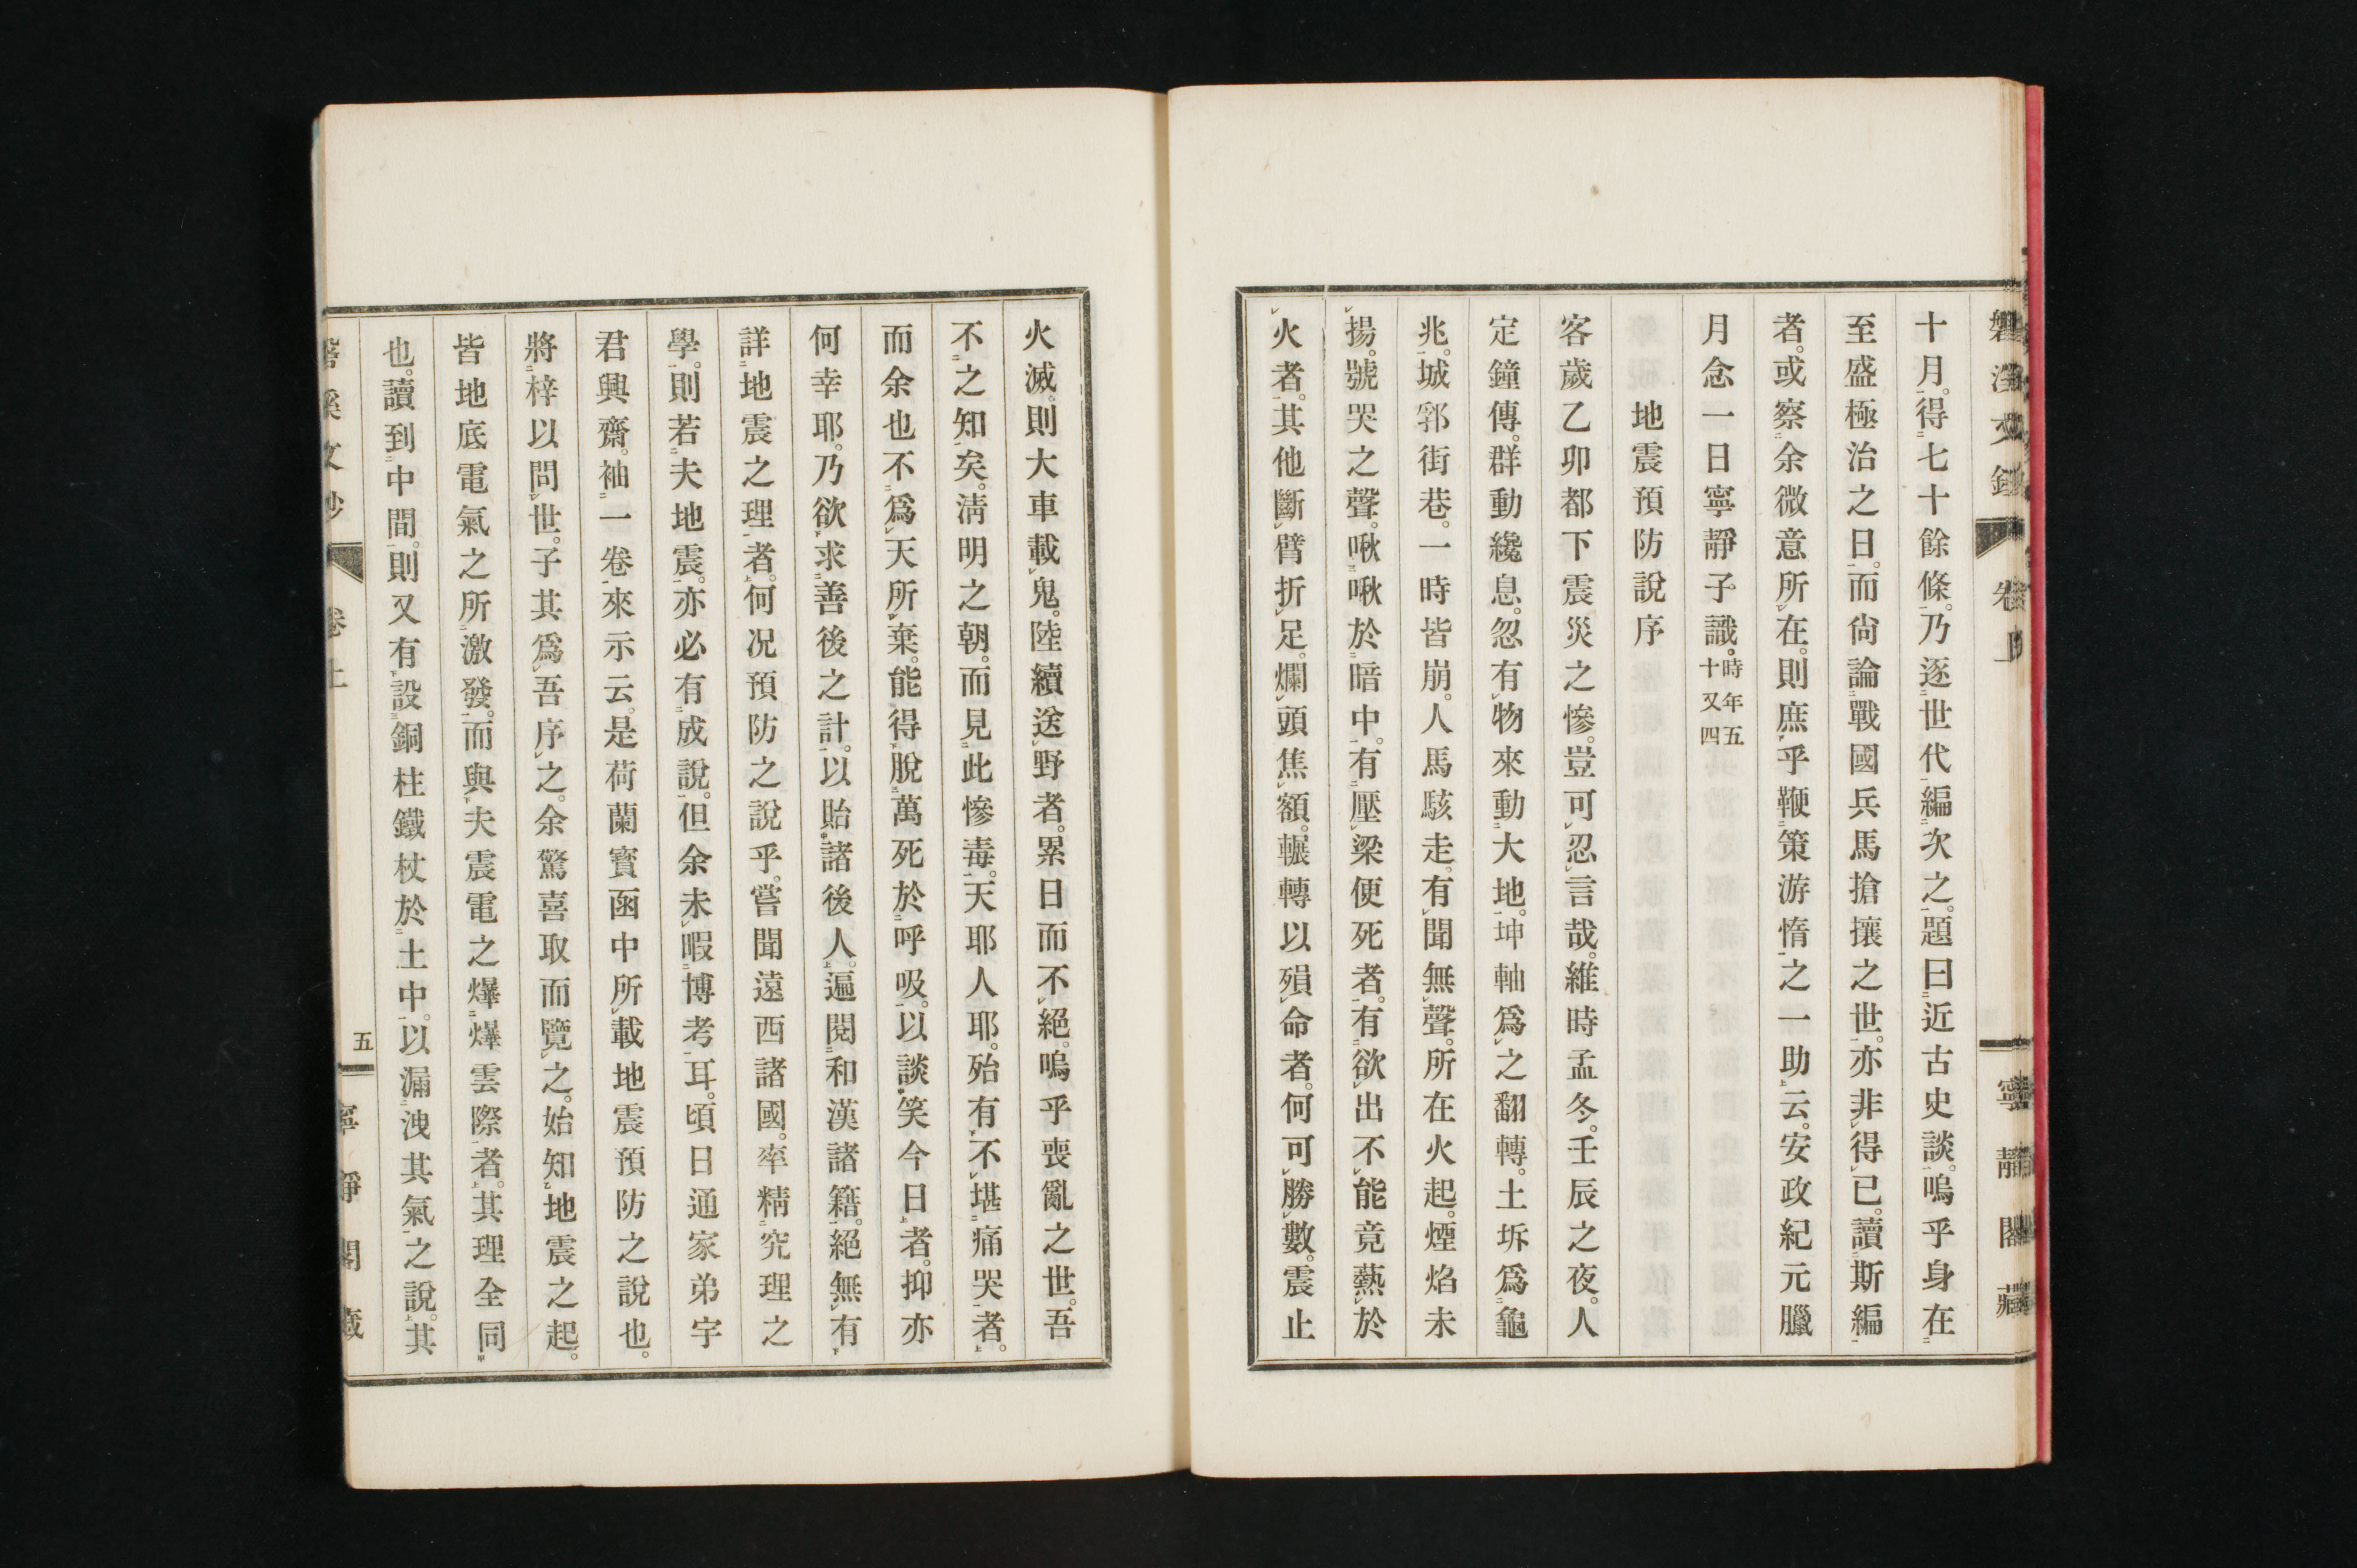 磐溪文鈔 卷上 寧靜閣藏
十月。得七十餘條。乃逐世代編次之。題曰近古史談。嗚乎身在
至盛極治之日。而尙論戰國兵馬搶攘之世。亦非得已。讀斯編
者。或察余微意所在。則庶乎鞭策游惰之一助云。安政紀元臘
月念一日寧靜子識。時年五十又四
地震預防說序
客歲乙卯都下震災之慘。豈可忍言哉。維時孟冬。壬辰之夜。人
定鐘傳。群動纔息。忽有物來動大地。坤軸爲之翻轉。土坼爲龜
兆。城郭街巷。一時皆崩。人馬駭走。有聞無聲。所在火起。煙焰未
揚。號哭之聲。啾啾於暗中。有壓梁便死者。有欲出不能竟爇於
火者。其他斷臂折足。爛頭焦額。輾轉以殞命者。何可勝數。震止
火滅。則大車載鬼。陸續送野者。累日而不絕。嗚乎喪亂之世。吾
不之知矣。淸明之朝。而見此慘毒。天耶人耶。殆有不堪痛哭者。
而余也不爲天所棄。能得脫萬死於呼吸。以談笑今日者。抑亦
何幸耶。乃欲求善後之計。以貽諸後人。遍閱和漢諸籍。絕無有
詳地震之理者。何况預防之說乎。嘗聞遠西諸國。率精究理之
學。則若夫地震。亦必有成說。但余未暇博考耳。頃日通家弟宇
君興齋。袖一卷來示云。是荷蘭寳函中所載地震預防之說也。
將梓以問世。子其爲吾序之。余驚喜取而覽之。始知地震之起。
皆地底電氣之所激發。而與夫震電之爆爆雲際者。其理全同
也。讀到中間。則又有設銅柱鐵杖於土中。以漏洩其氣之說。其
磐溪文鈔 卷上 五 寧靜閣藏